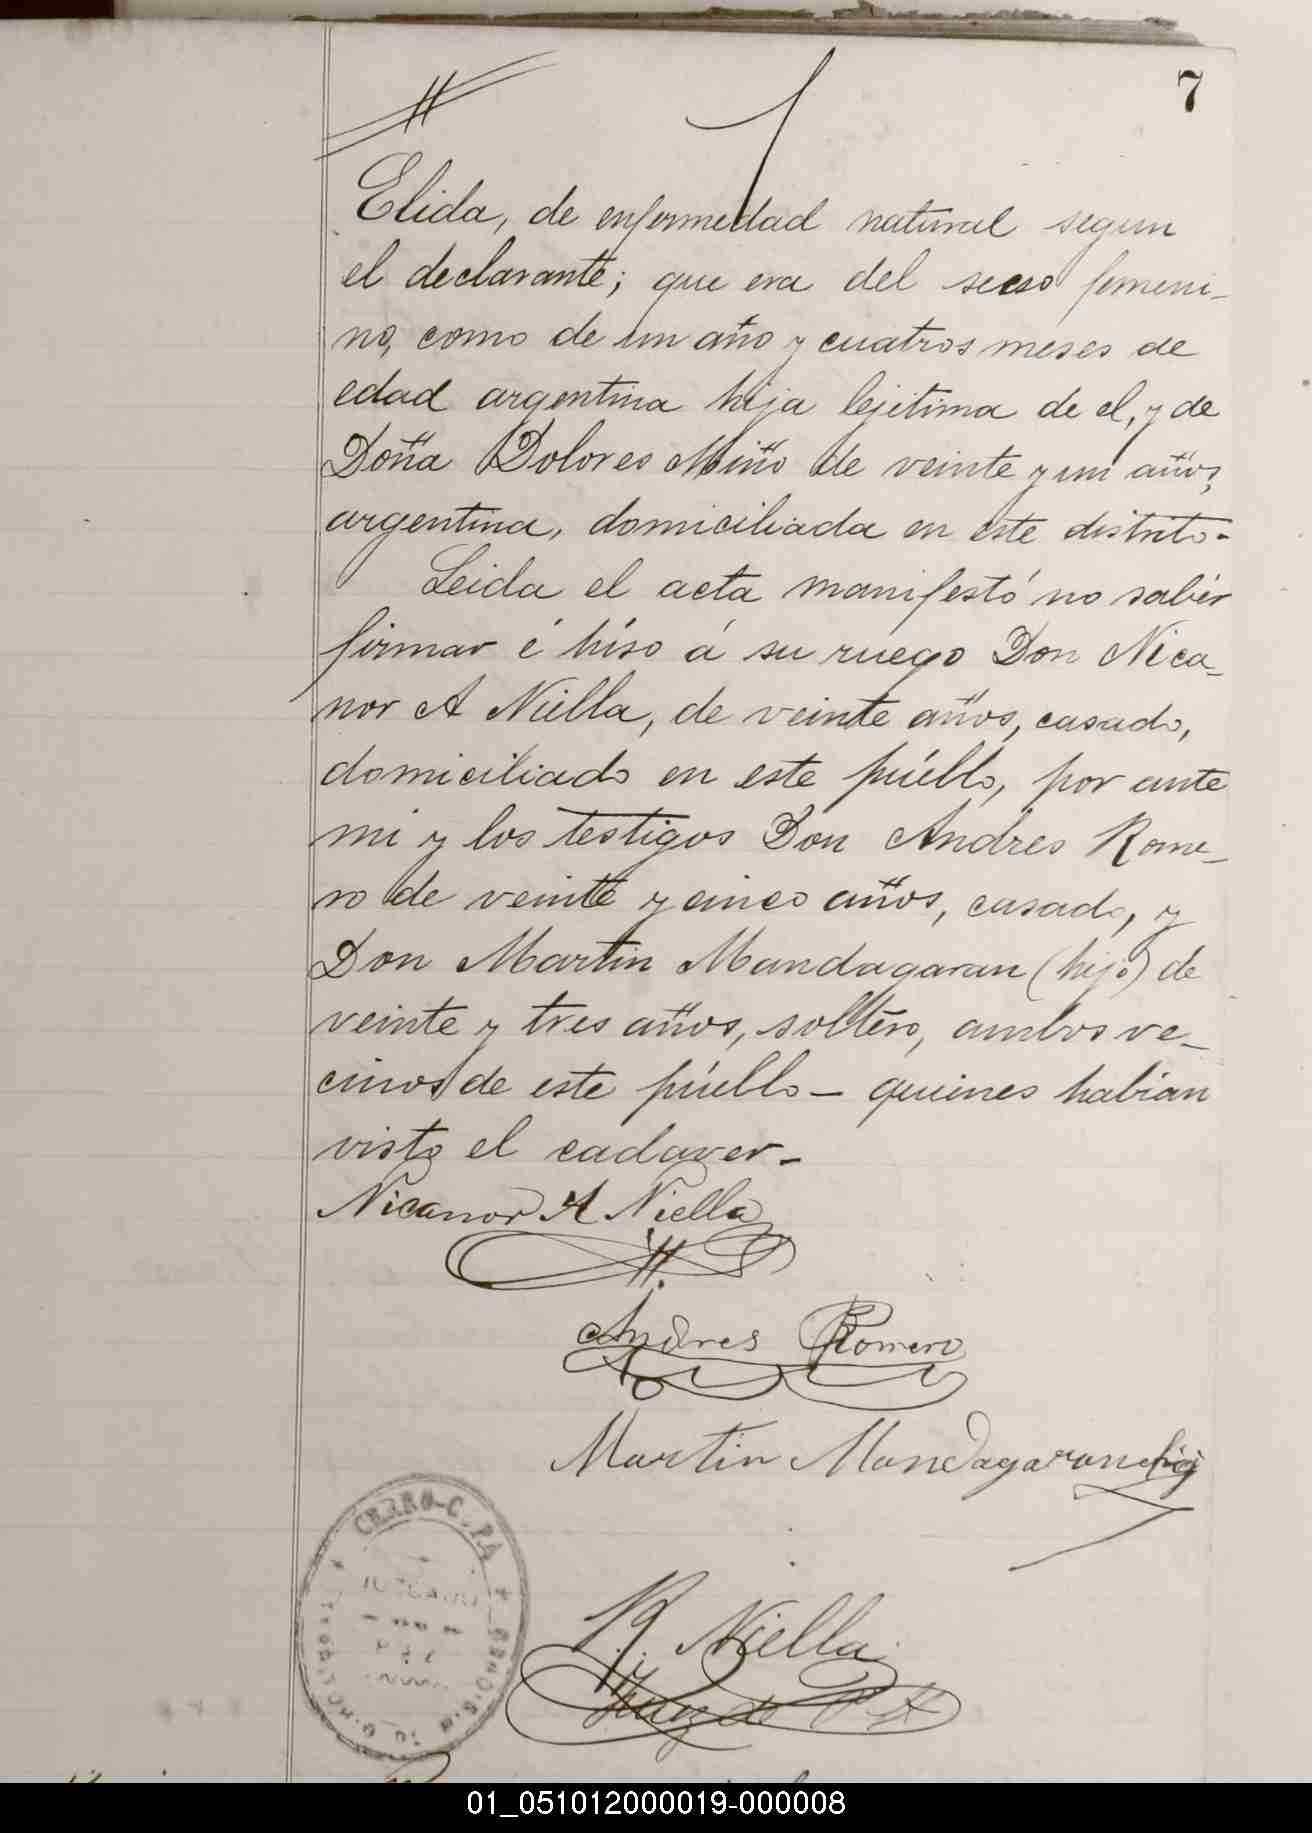 7
Elida, de enfermedad natural segun
el declarante; que era del secso femeni-
no, como de un año y cuatros meses de
edad argentina hija lejitima de el, y de
Doña Dolores Miño de veinte y un años,
argentina, domiciliada en este distrito-
Leida el acta manifestó no saber
firmar é hiso á su ruego Don Nica-
nor A Niella, de veinte años, casado,
domiciliado en este puéblo, por ante
mi y los testigos Don Andres Rome-
ro de veinte y cinco años, casado, y
Don Martin Mandagaran (hijo) de
veinte y tres años, soltéro, ambos ve-
cinos de este puéblo- quienes habian
visto el cadaver-
Nicanor A Niella
Andres Romero
Martin Mandagaran hijo
CERRO-C
R. Niella
Juez de P
01_051012000019-000008